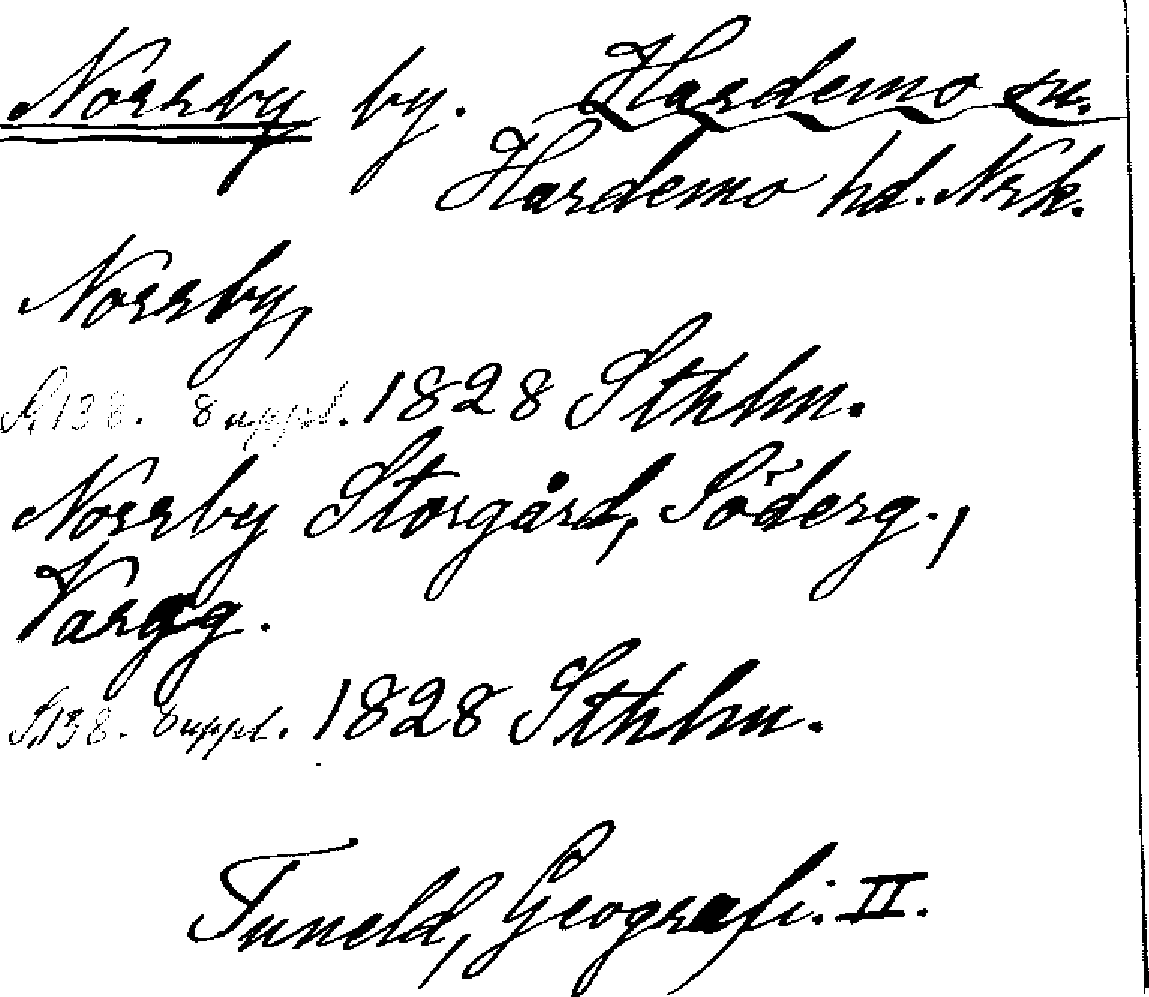 Norrby by. Hardemo sn.
Hardemo hd. Nrk.
Norrby,
S. 138. Suppl. 1828 Sthlm.
Norrby Storgård, Söderg.,
Varg.
S. 138. Suppl. 1828 Sthlm.
Tuneld, Geografi. II.